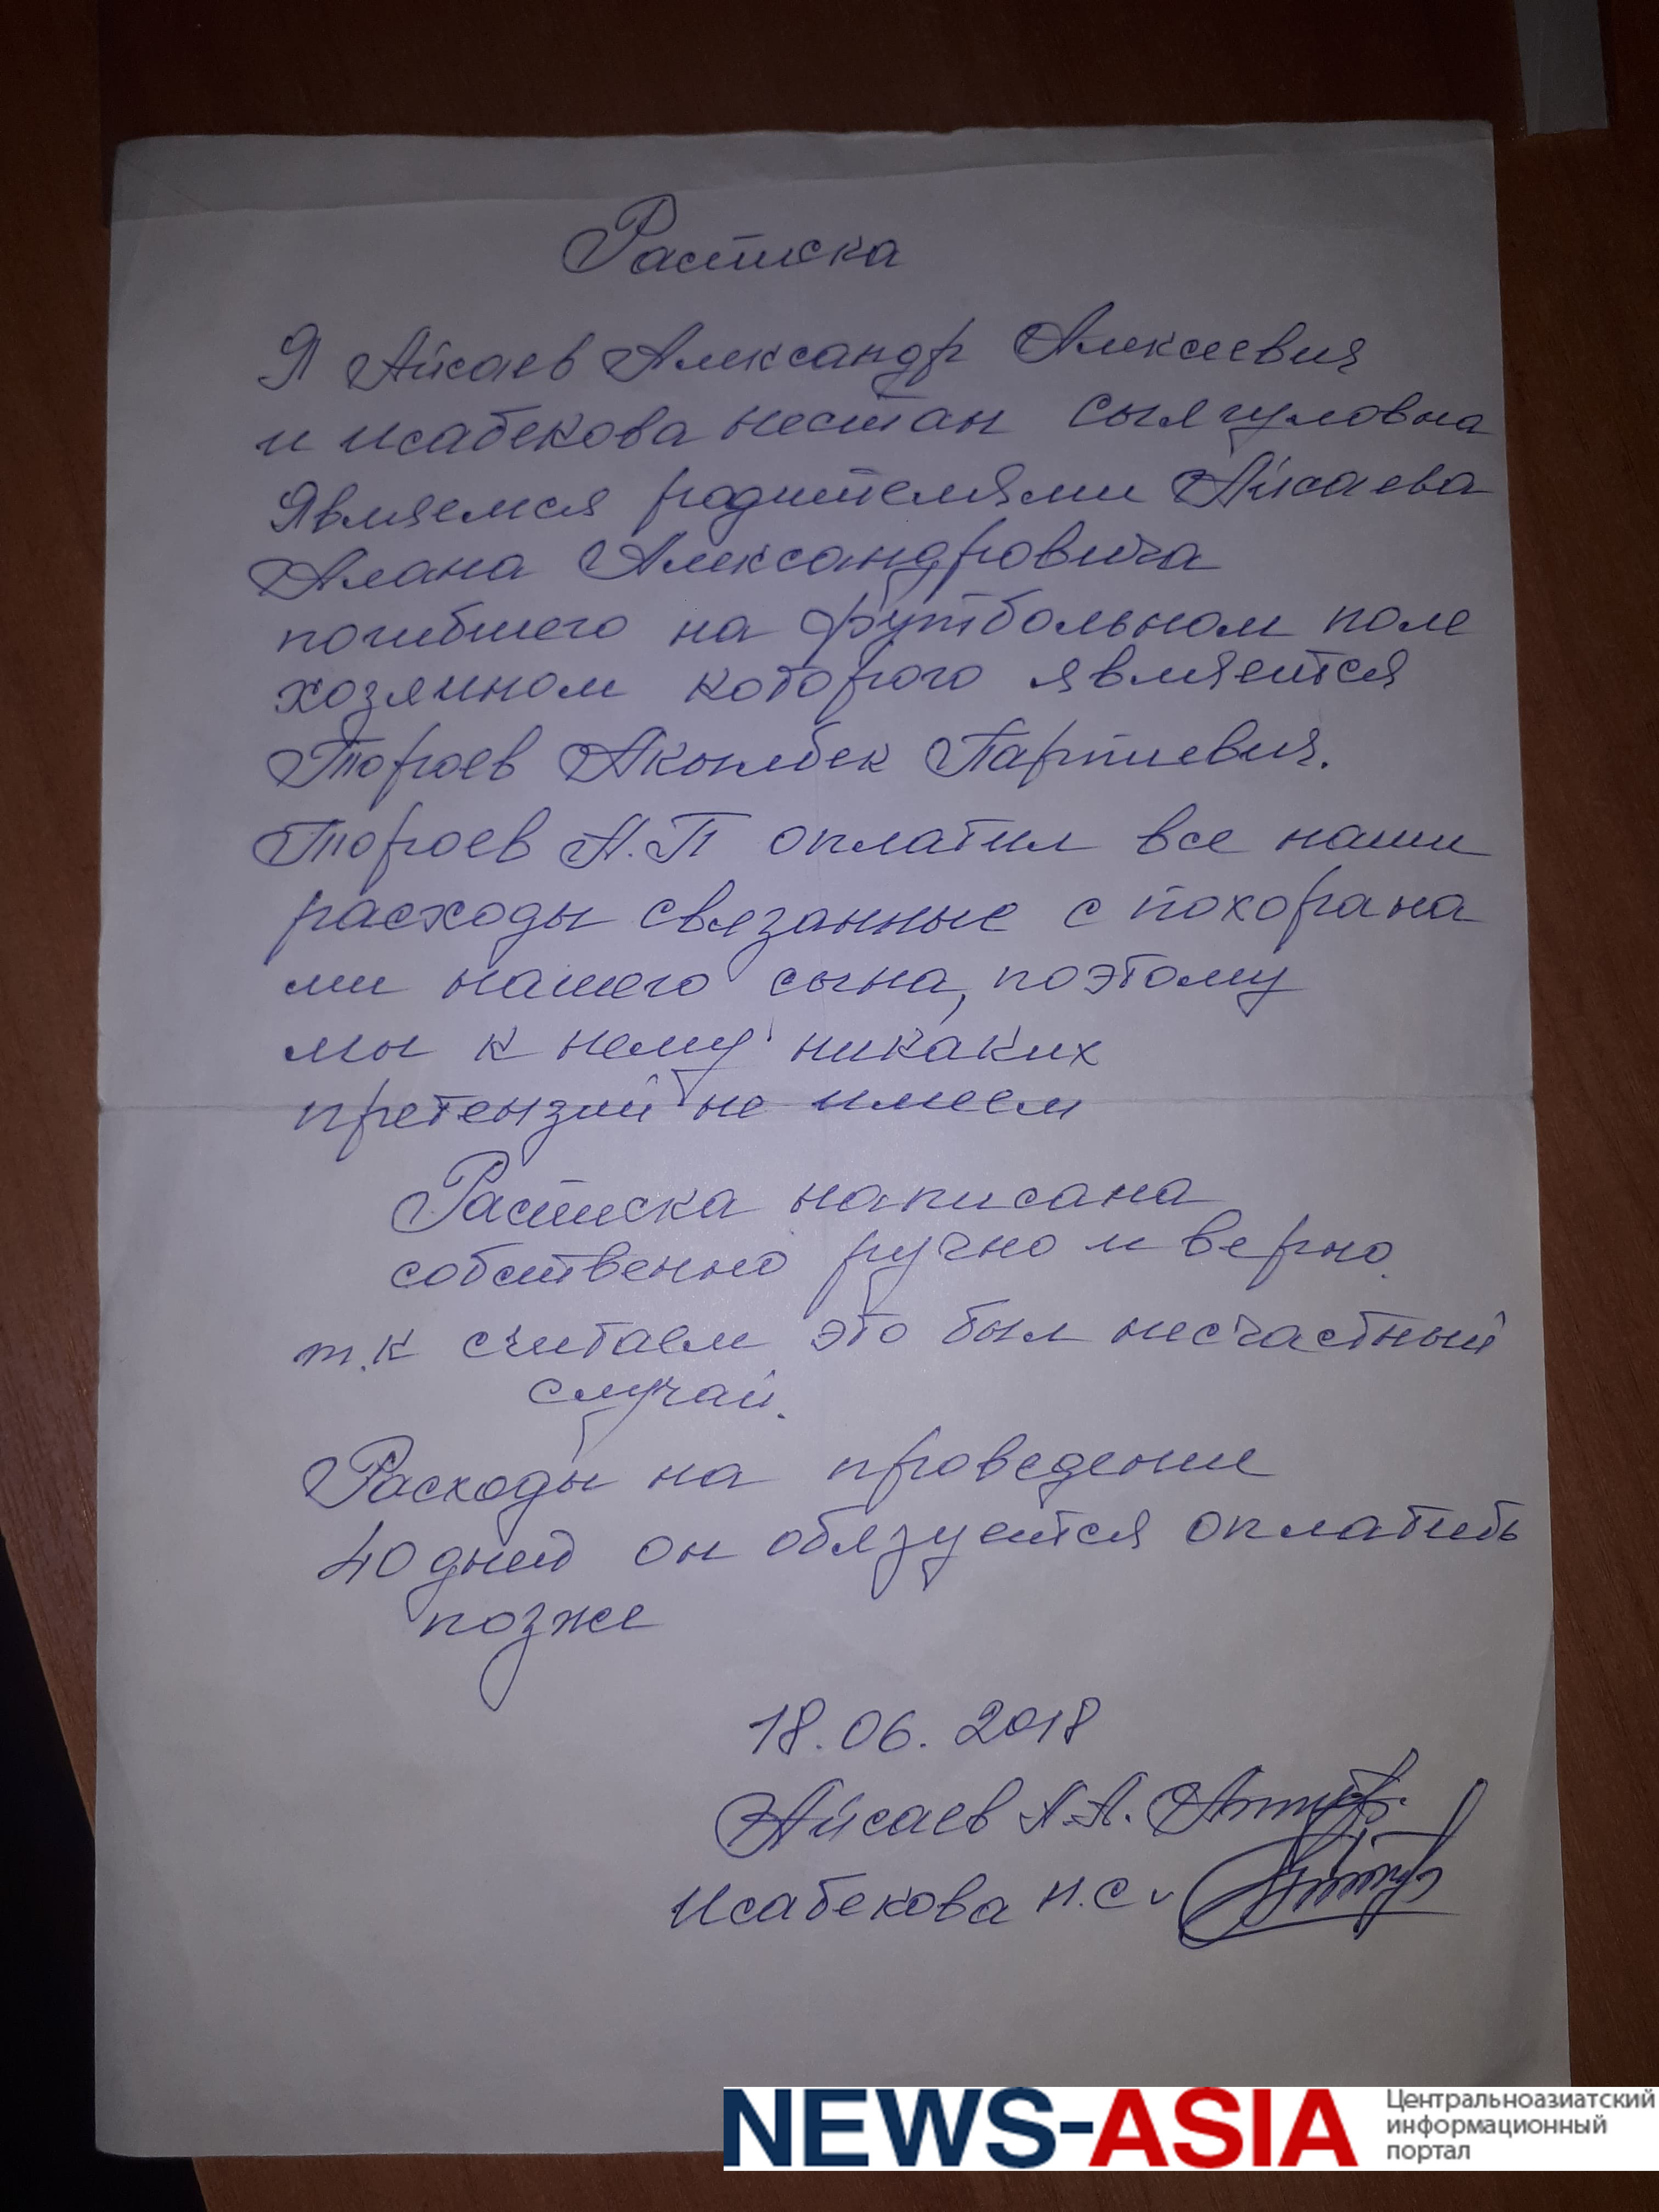 Расписка
Я Айсаев Александр Алексеевич
и исабекова нестан сыягуловна
Являемся родителями Айсаева
Алана Александровича
погибшего на футбольном поле
хозяином которого является
Тороев Акылбек Партиевич.
Тороев А.П оплатил все наши
расходы связанные с похорана
ми нашего сына, поэтому
мы к нему никаких
претензий не имеем
Расписка написана
собственно ручно и верно.
т.к считаем это был несчастный
случай.
Расходы на проведение
40 дней он обязуется оплатить
позже
18.06.2018
Айсаев А.А.
Исабекова Н.С
NEWS-ASIA
Центральноазиатский
информационный
портал